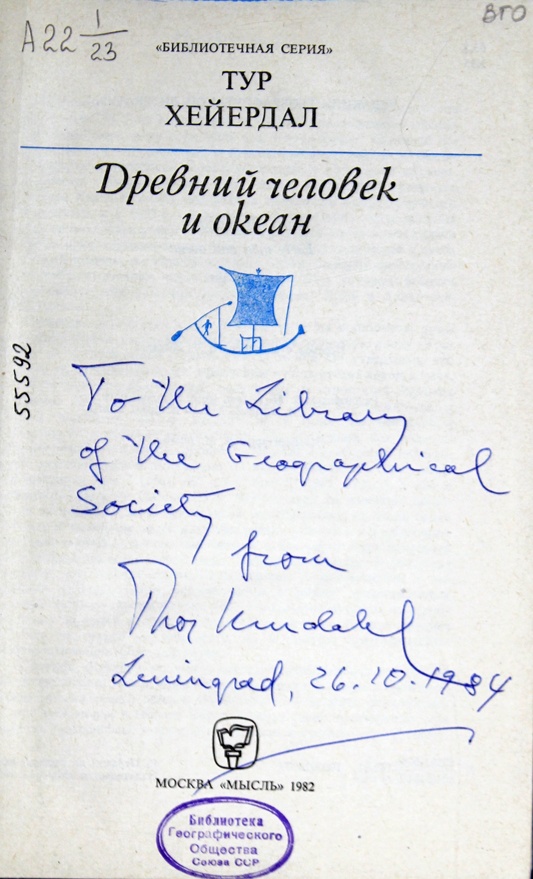 ВГО
А22 1/23
«БИБЛИОТЕЧНАЯ СЕРИЯ»
ТУР
ХЕЙЕРДАЛ
Древний человек
и океан
55592
To the Library
of the Geographical
Society
from
Thor Heyerdahl
Leningrad, 26.10.1984
МОСКВА «МЫСЛЬ» 1982
Библиотека
Географического
Общества
Союза ССР